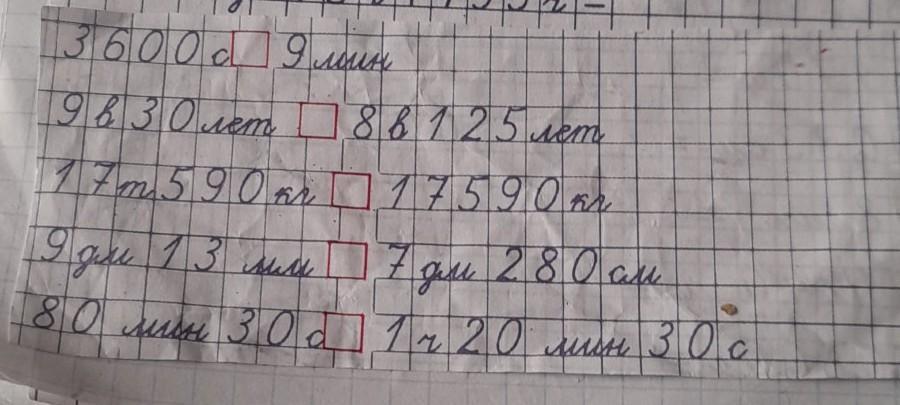 3600 с □ 9 мин
9 в 30 лет □ 8 в 125 лет
17 т 590 кг □ 17590 кг
9 дм 13 мм □ 7 дм 280 см
80 мин 30 с □ 1 ч 20 мин 30 с